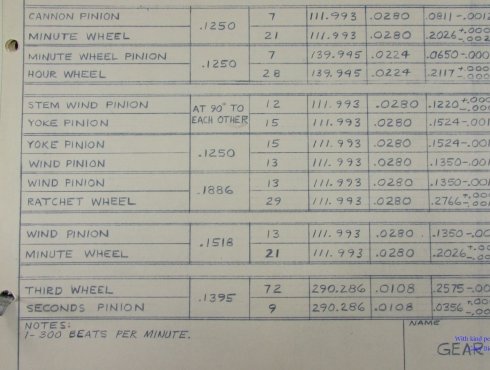 CANNON PINION .1250 7 111.993 .0280 .0811-.001
MINUTE WHEEL 21 111.993 .0280 .2026
MINUTE WHEEL PINION .1250 7 139.945 .0224 .0650-.00
HOUR WHEEL 28 139.945 .0224 .2117
STEM WIND PINION AT 90° TO EACH OTHER 12 111.993 .0280 .1220
YOKE PINION 15 111.993 .0280 .1524-.001
YOKE PINION .1250 15 111.993 .0280 .1524-.001
WIND PINION 13 111.993 .0280 .1350-.001
WIND PINION .1886 13 111.993 .0280 .1350-.001
RATCHET WHEEL 29 111.993 .0280 .2766
WIND PINION .1518 13 111.993 .0280 .1350-.00
MINUTE WHEEL 21 111.993 .0280 .2026
THIRD WHEEL .1395 72 290.286 .0108 .2575-.00
SECONDS PINION 9 290.286 .0108 .0356
NOTES:
1- 300 BEATS PER MINUTE.
NAME
GEAR
With kind